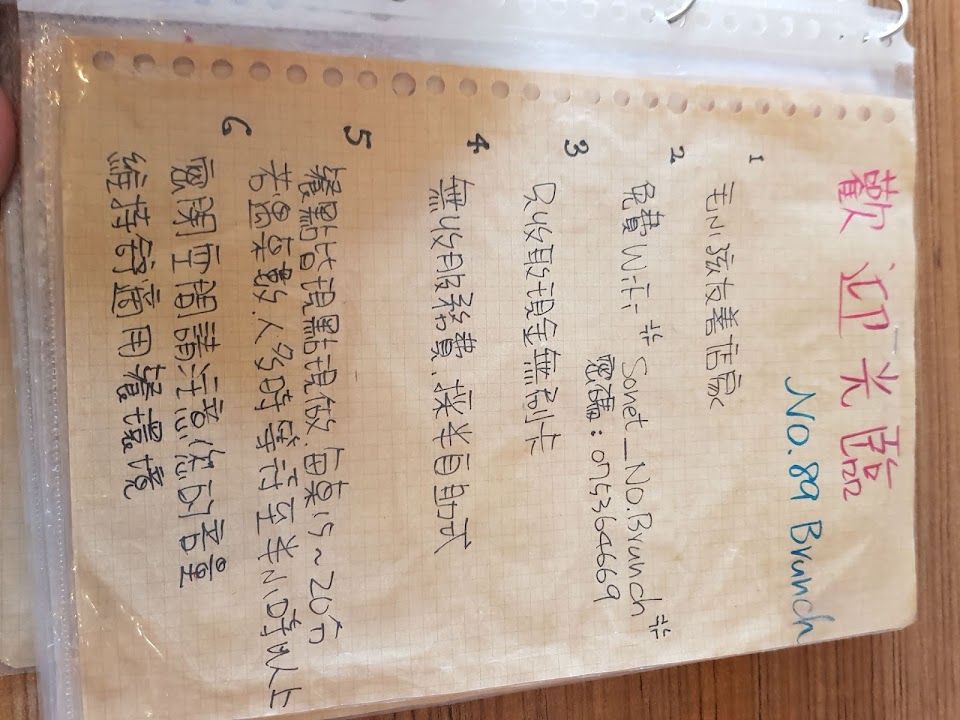 歡迎光臨
No.89 Brunch
1 毛小孩友善店家
2 免費Wifi ※ Sonet_No.Brunch ※
密碼:075364669
3 只收取現金無刷卡
4 無收服務費.採半自助式
5 餐點皆現點現做.每桌15~20分
若遇桌數.人多時等待至半小時以上
6 密閉空間請注意您的音量
維持舒適用餐環境